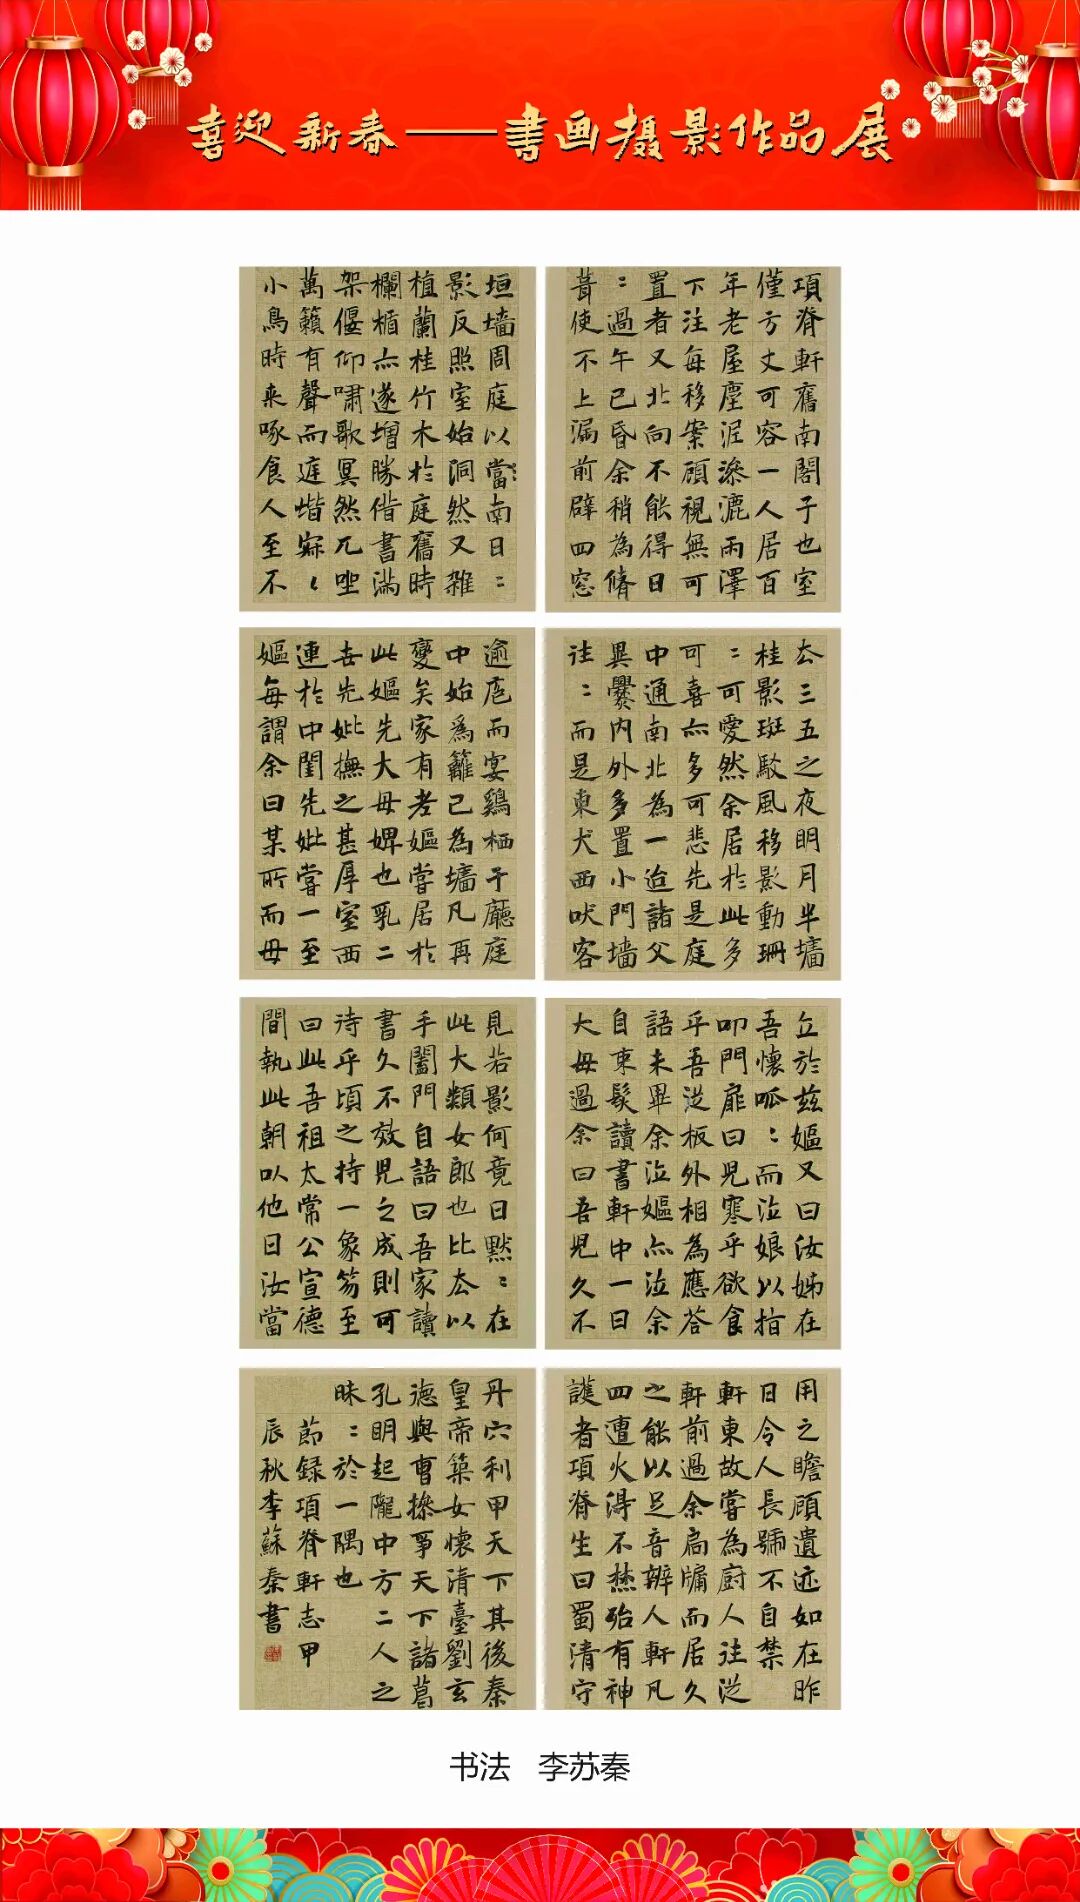 喜迎新春——书画摄影作品展
項脊軒舊南閣子也室
僅方丈可容一人居百
年老屋塵泥滲漉雨澤
下注每移案顧視無可
置者又北向不能得日
：過午已昏余稍為脩
葺使不上漏前辟四窓
垣墙周庭以當南日：
影反照室始洞然又雜
植蘭桂竹木於庭舊時
欄楯亦遂增勝借書滿
架偃仰嘯歌冥然兀坐
萬籟有聲而庭堦寂ヽ
小鳥時来啄食人至不
去三五之夜明月半墻
桂影斑駁風移影動珊
：可愛然余居於此多
可喜亦多可悲先是庭
中通南北為一迨諸父
異爨内外多置小門墙
往：而是東犬西吠客
逾庖而宴鷄栖于廳庭
中始為籬已為墻凡再
變矣家有老嫗嘗居於
此嫗先大母婢也乳二
世先妣撫之甚厚室西
連於中閨先妣嘗一至
嫗每謂余曰某所而母
立於兹嫗又曰汝姊在
吾懷呱：而泣娘以指
叩門扉曰兒寒乎欲食
乎吾從板外相為應答
語未畢余泣嫗亦泣余
自束髮讀書軒中一日
大母過余曰吾兒久不
見若影何竟日默：在
此大類女郎也比去以
手闔門自語曰吾家讀
書久不效兒之成則可
待乎頃之持一象笏至
曰此吾祖太常公宣德
間執此朝以他日汝當
用之瞻顧遺迹如在昨
日令人長號不自禁
軒東故嘗為廚人往從
軒前過余扃牖而居久
之能以足音辨人軒凡
四遭火得不焚殆有神
護者項脊生曰蜀清守
丹穴利甲天下其後秦
皇帝築女懷清臺劉玄
德與曹操爭天下諸葛
孔明起隴中方二人之
昧：於一隅也
節録項脊軒志甲
辰秋李蘇秦書
书法 李苏秦